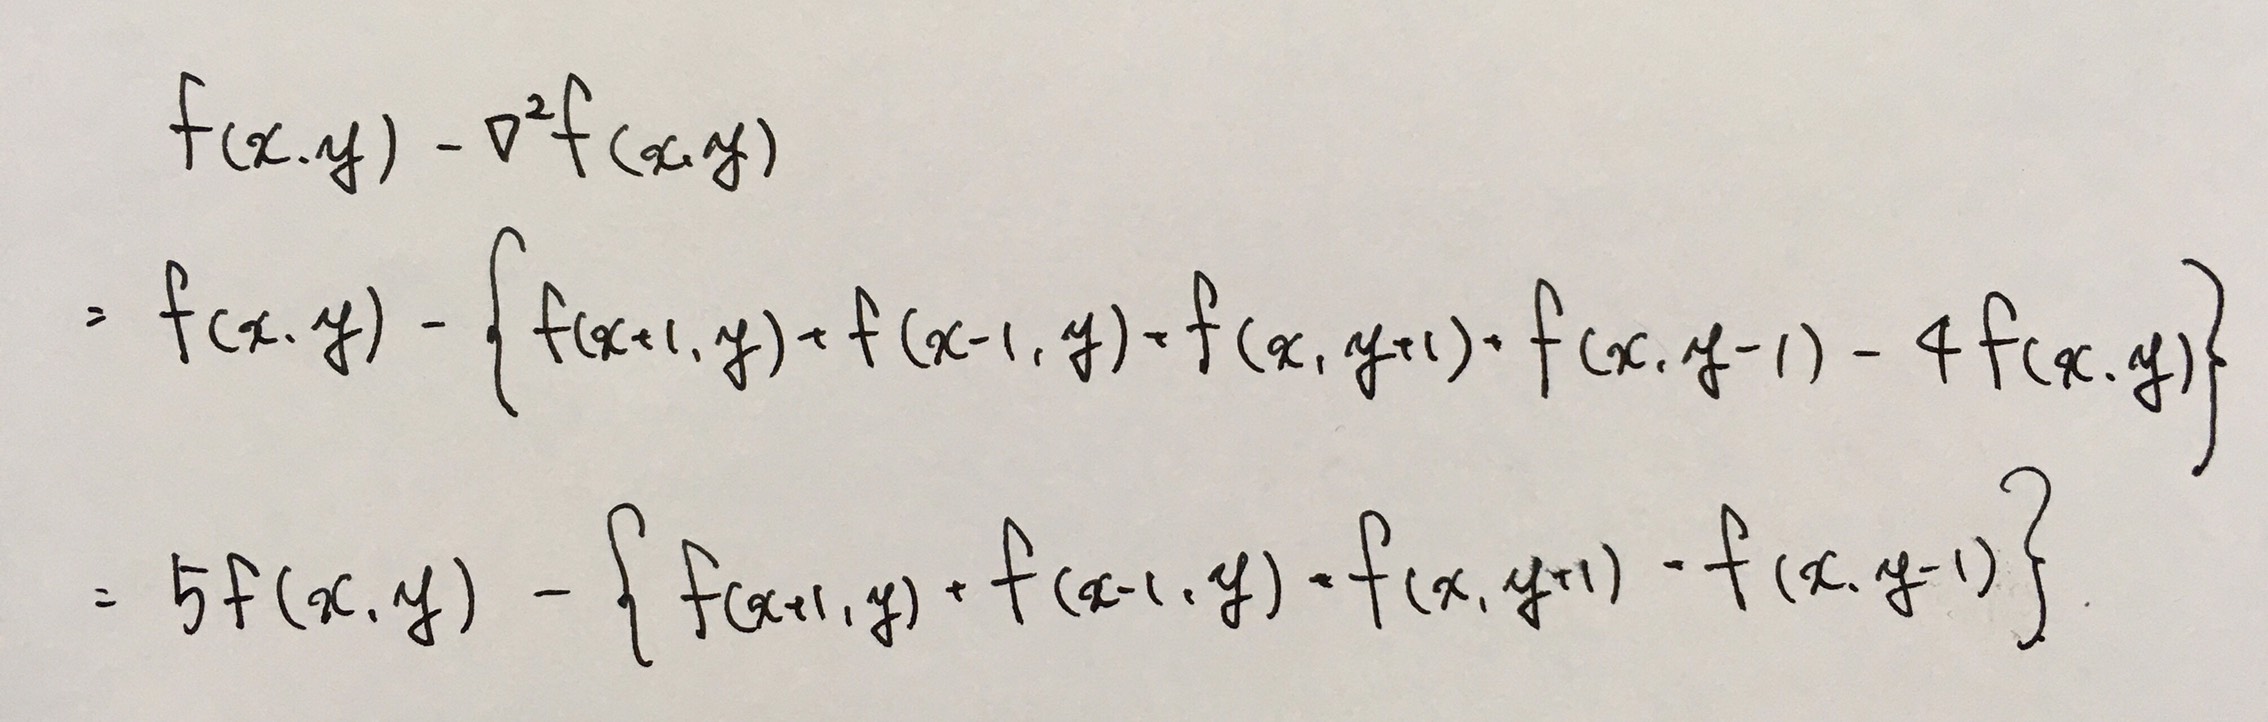 f(x.y) - ∇²f(x,y)
= f(x.y) - {f(x+1,y) + f(x-1,y) + f(x,y+1) + f(x.y-1) - 4f(x.y)}
= 5f(x,y) - {f(x+1,y) + f(x-1,y) + f(x,y+1) + f(x.y-1)}.